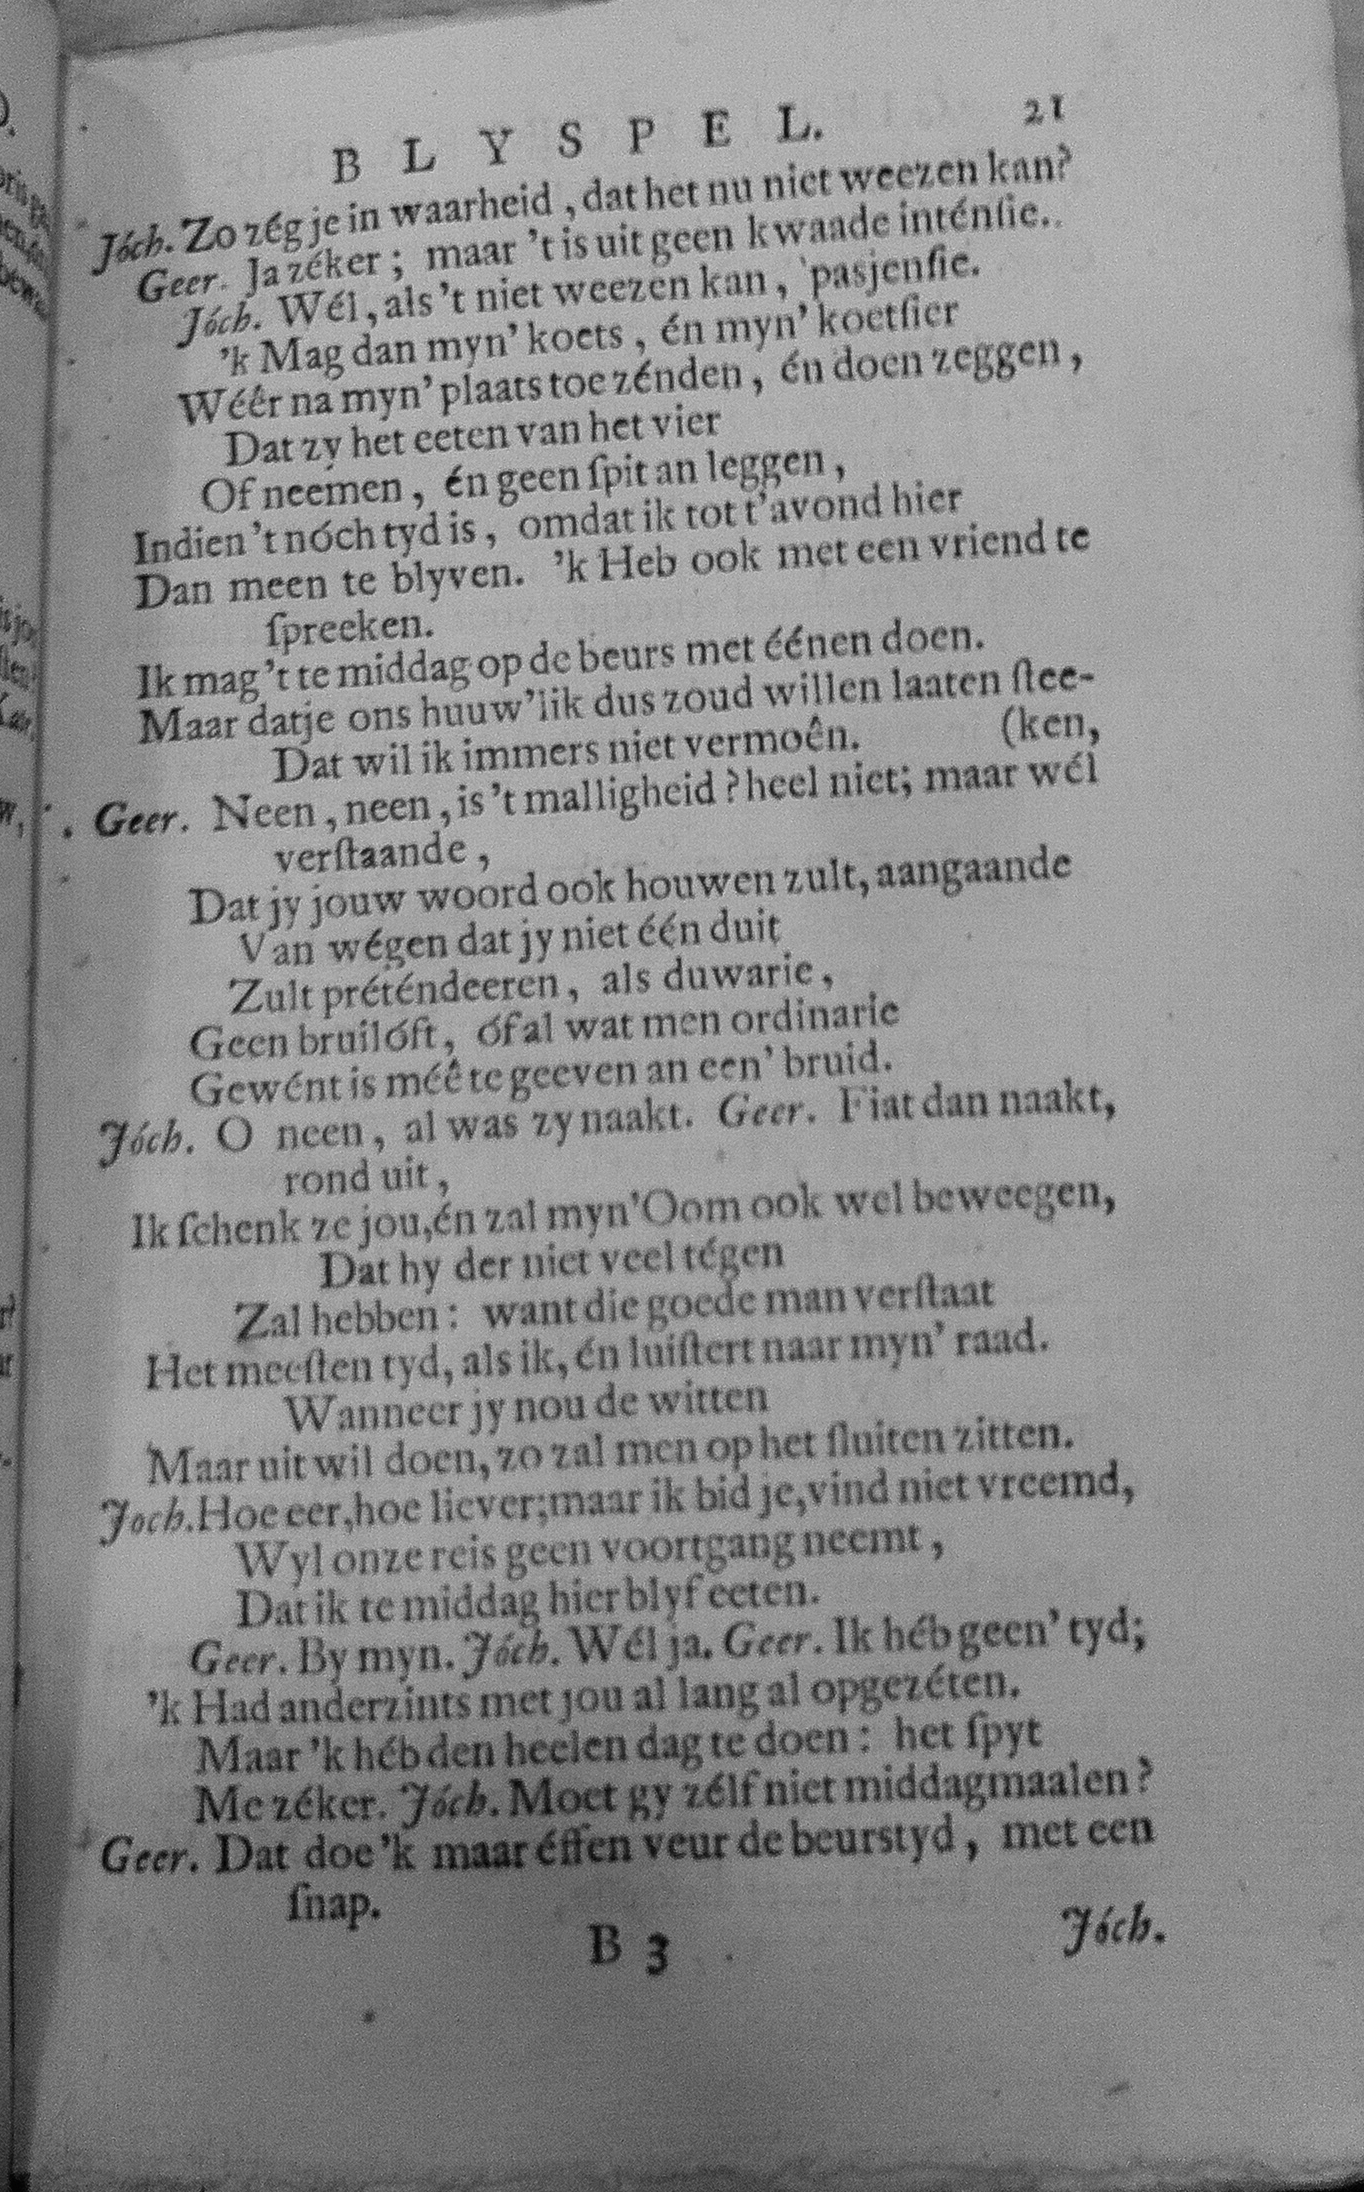 BLYSPEL. 21
Jóch. Zo zég je in waarheid, dat het nu niet weezen kan?
Geer. Ja zéker; maar 't is uit geen kwaade inténſie.
Jóch. Wél, als 't niet weezen kan, pasjenſie.
'k Mag dan myn' koets, én myn' koetſier
Wéêr na myn' plaats toe zénden, én doen zeggen,
Dat zy het eeten van het vier
Of neemen, én geen ſpit an leggen,
Indien 't nóch tyd is, omdat ik tot t'avond hier
Dan meen te blyven. 'k Heb ook met een vriend te
ſpreeken.
Ik mag 't te middag op de beurs met éénen doen.
Maar datje ons huuw'lik dus zoud willen laaten ſtee-
Dat wil ik immers niet vermoên. (ken,
Geer. Neen, neen, is 't malligheid? heel niet; maar wél
verſtaande,
Dat jy jouw woord ook houwen zult, aangaande
Van wégen dat jy niet één duit
Zult préténdeeren, als duwarie,
Geen bruilóft, óf al wat men ordinarie
Gewént is méê te geeven an een' bruid.
Jóch. O neen, al was zy naakt. Geer. Fiat dan naakt,
rond uit,
Ik ſchenk ze jou, én zal myn' Oom ook wel beweegen,
Dat hy der niet veel tégen
Zal hebben: want die goede man verſtaat
Het meeſten tyd, als ik, én luiſtert naar myn' raad.
Wanneer jy nou de witten
Maar uit wil doen, zo zal men op het ſluiten zitten.
Joch. Hoe eer, hoe liever; maar ik bid je, vind niet vreemd,
Wyl onze reis geen voortgang neemt,
Dat ik te middag hier blyf eeten.
Geer. By myn. Jóch. Wél ja. Geer. Ik héb geen' tyd;
'k Had anderzints met jou al lang al opgezéten.
Maar 'k héb den heelen dag te doen: het ſpyt
Me zéker. Jóch. Moet gy zélf niet middagmaalen?
Geer. Dat doe 'k maar éffen veur de beurstyd, met een
ſnap.
B 3 Jóch.